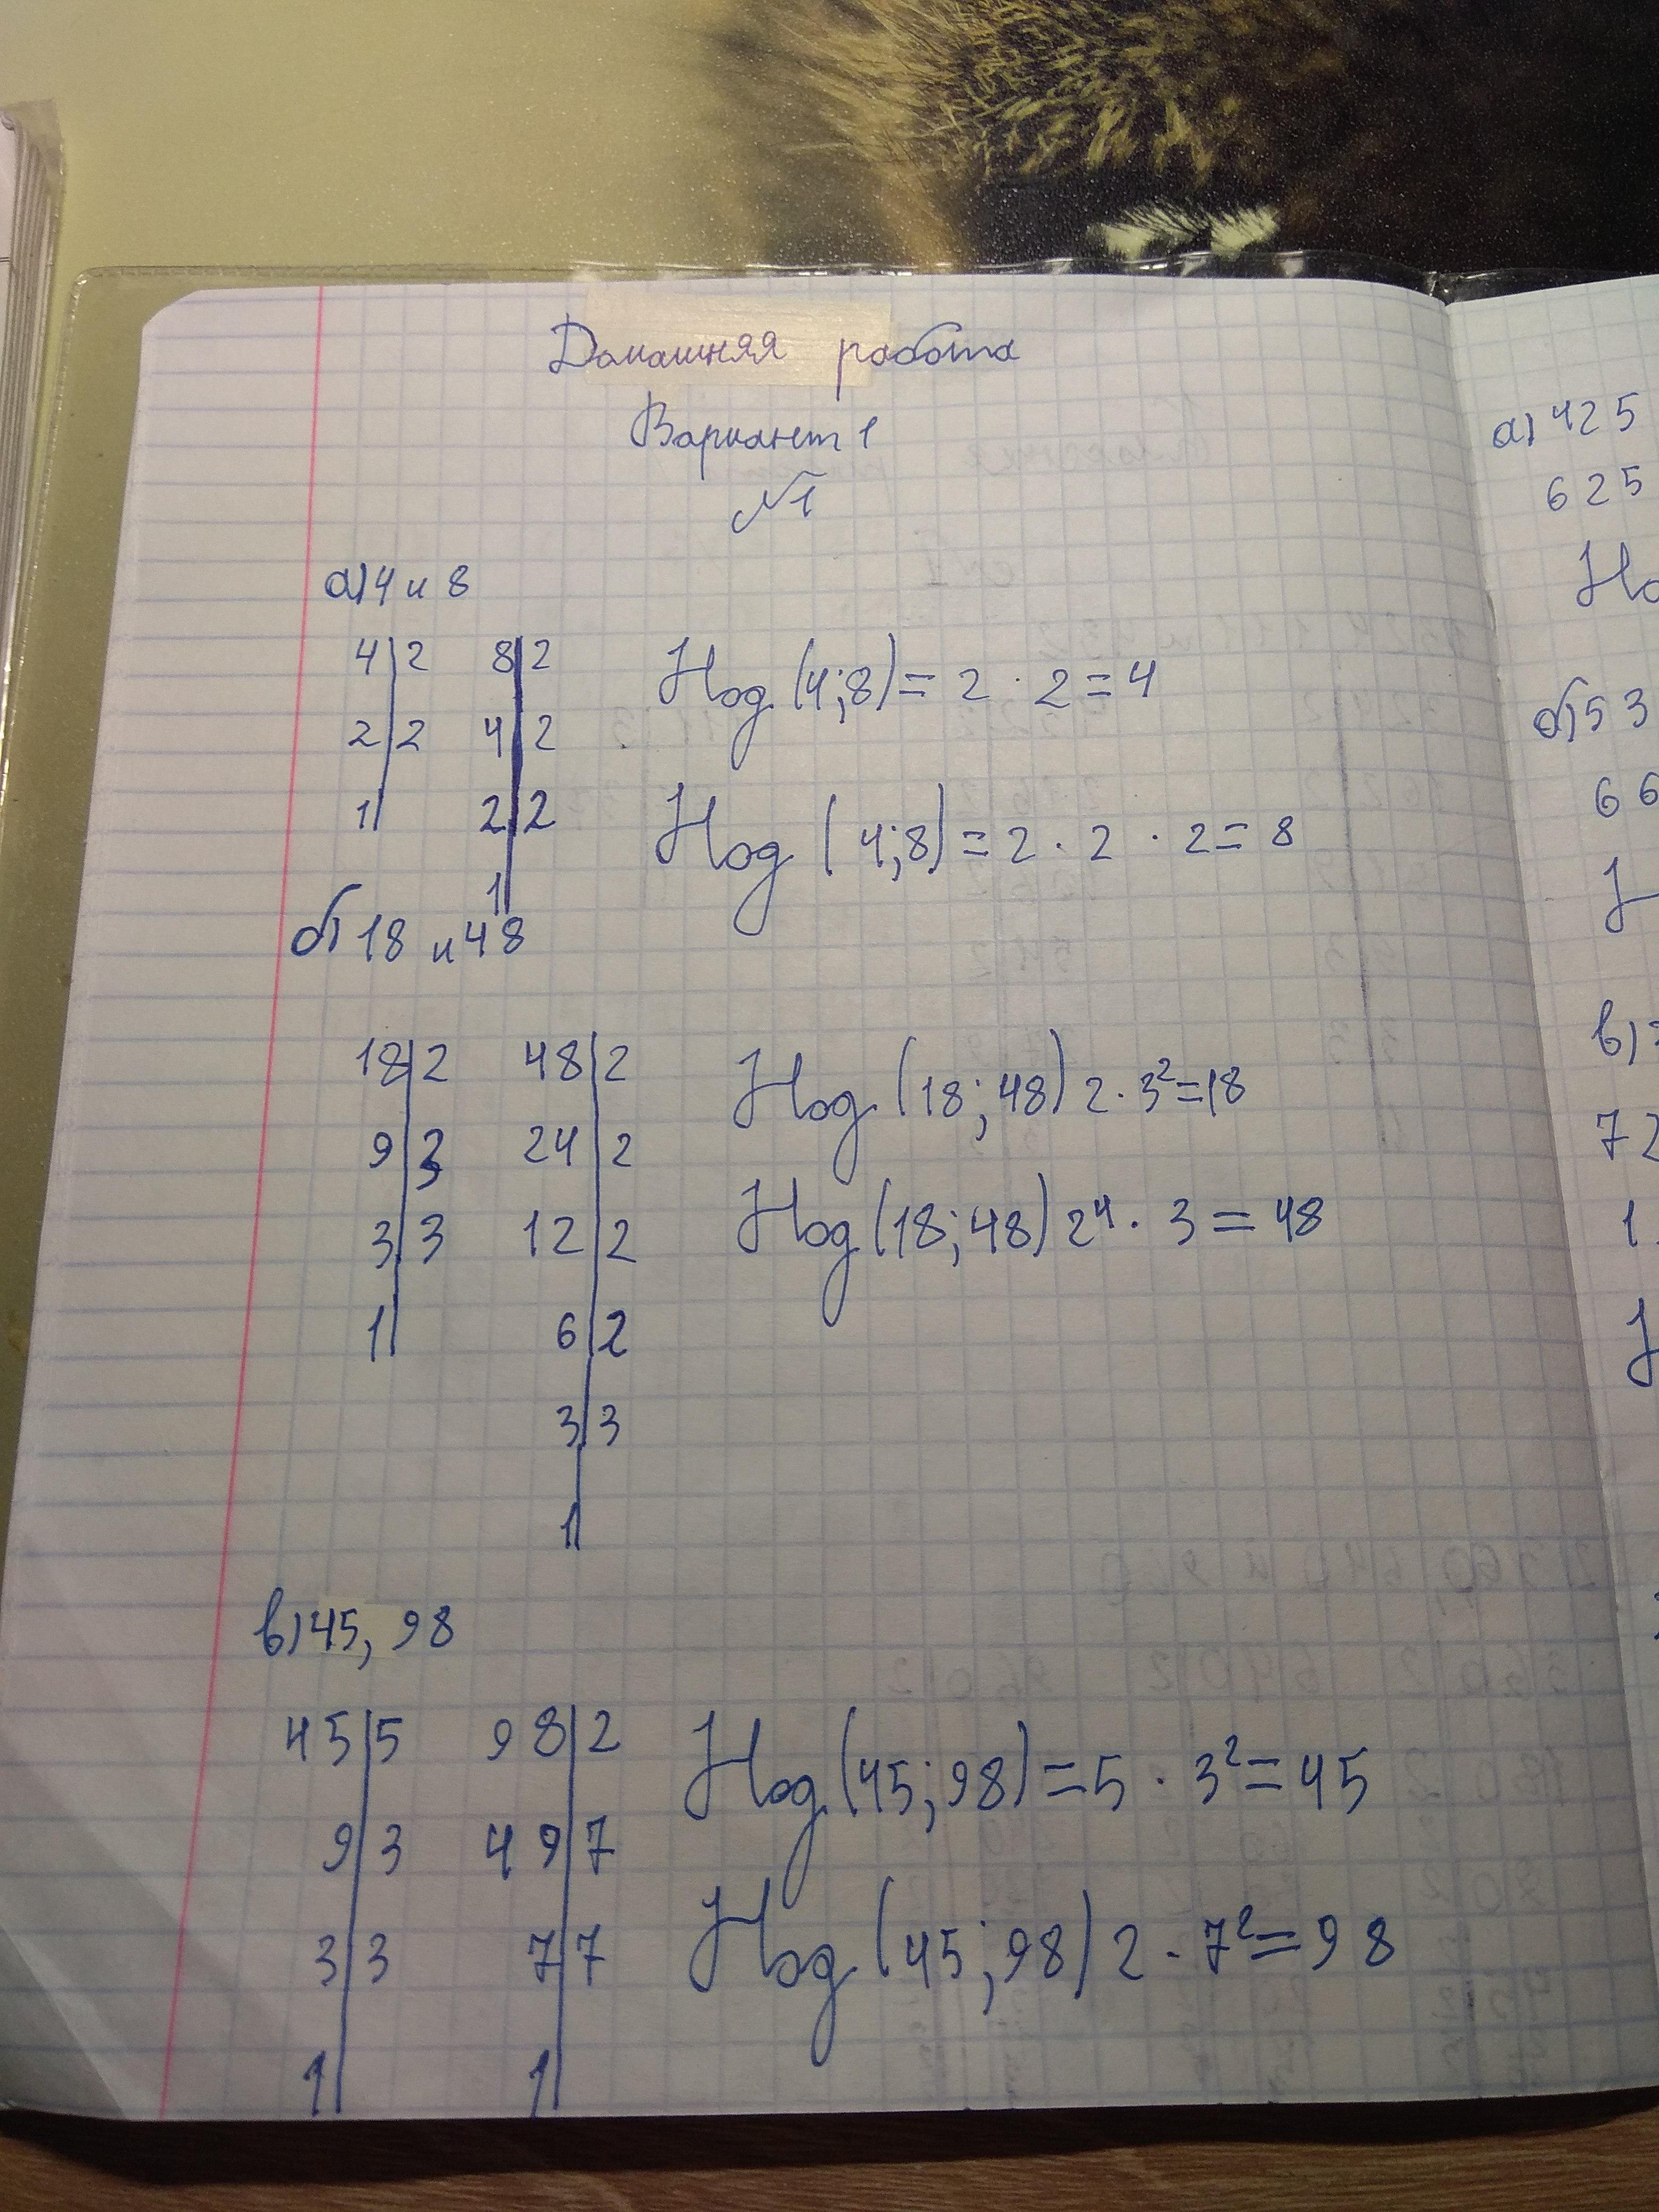 Домашняя работа
Вариант 1
№1
а) 4 и 8
4|2 8|2
2|2 4|2
1| 2|2
1|
Нод (4;8) = 2 · 2 = 4
Нод (4;8) = 2 · 2 · 2 = 8
б) 18 и 48
18|2 48|2
9|3 24|2
3|3 12|2
1| 6|2
3|3
1|
Нод (18;48) 2 · 3² = 18
Нод (18;48) 2⁴ · 3 = 48
в) 45, 98
45|5 98|2
9|3 49|7
3|3 7|7
1| 1|
Нод (45;98) = 5 · 3² = 45
Нод (45;98) 2 · 7² = 98
а) 425
625
Но
б) 53
66
в)
72
1